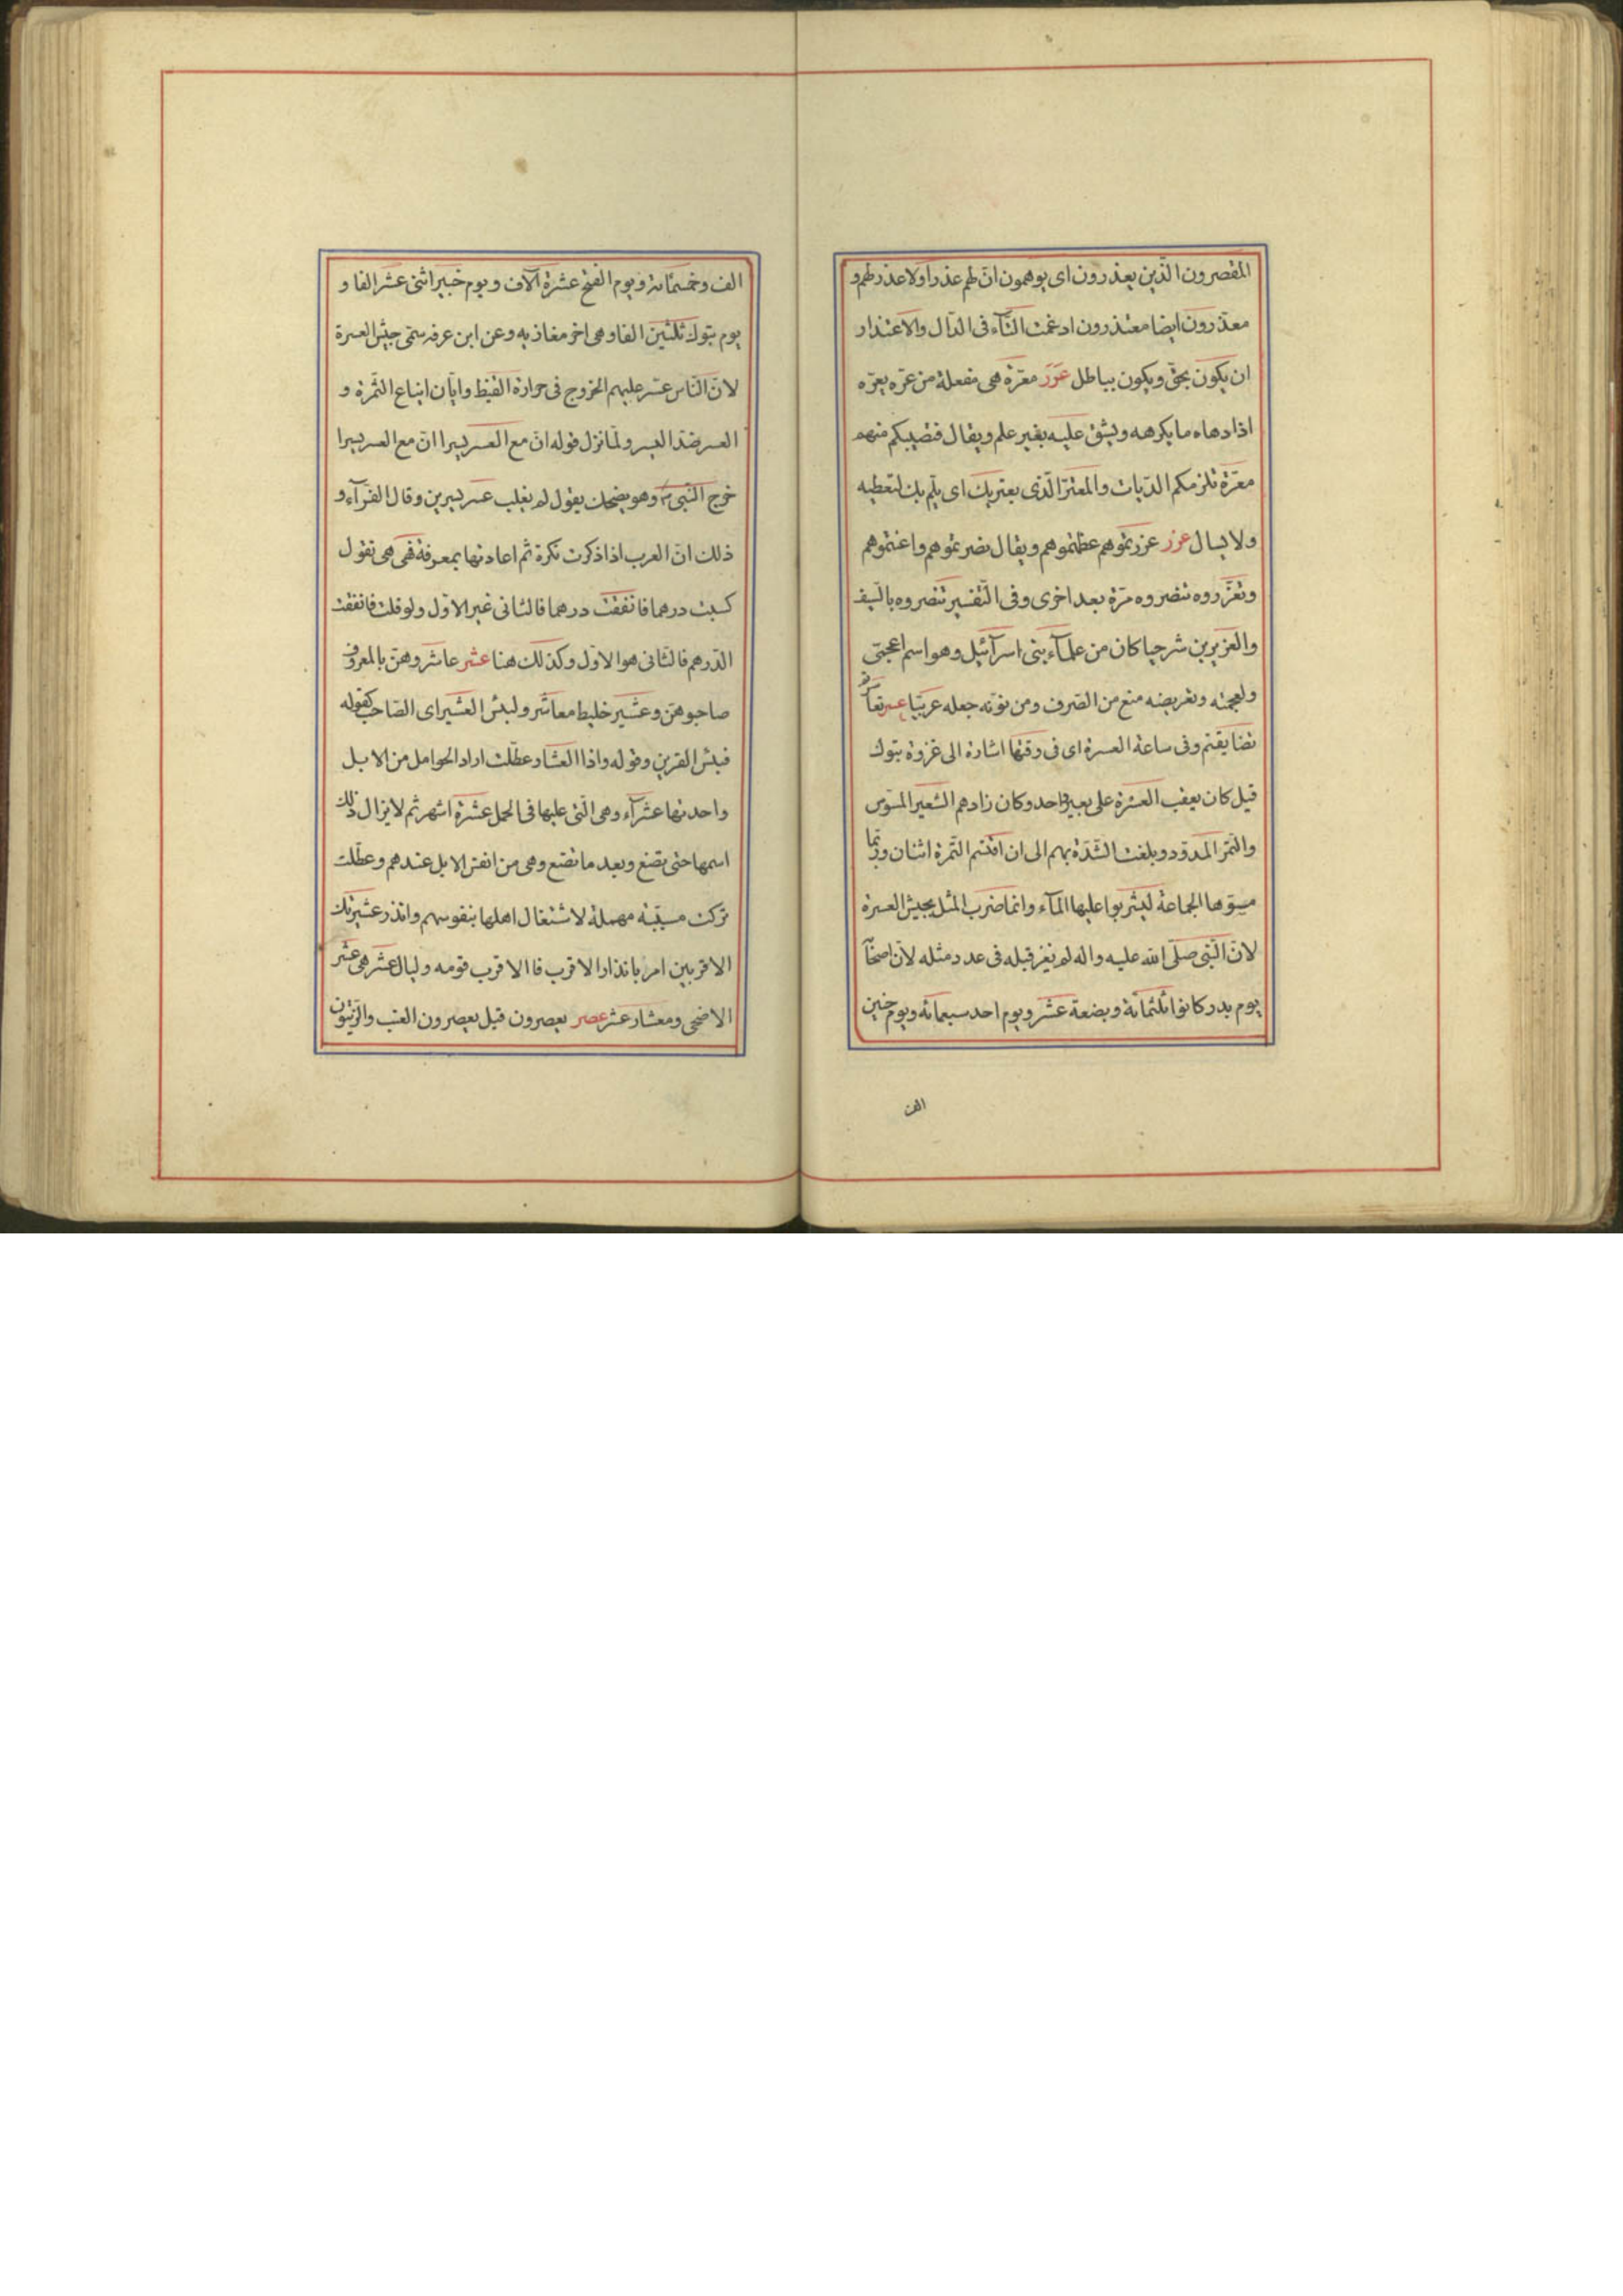 المقصرون الّذين يعذرون اى يوهمون انّ لهم عذرا ولا عذر لهم و
معذّرون ايضا معتذرون ادغمت التّآء فى الذّال والاعتذار
ان يكون بحقّ ويكون بباطل عرر معرّة هى مفعلة من عرّه يعرّه
اذا دهاه ما يكرهه ويشقّ عليه بغير علم ويقال فتصيبكم منهم
معرّة تلزمكم الدّيات والمعترّ الّذى يعتريك اى يلم بك لتعطيه
ولا يسال عزر عزرتموهم عظمتموهم ويقال نصرتموهم واعنتموهم
وتعزّروه تنصروه مرّة بعد اخرى وفى التّفسير تنصروه بالسّيف
والعزير بن شرحيا كان من علمآء بنى اسرآئيل وهو اسم اعجمّى
ولعجمته وتعريفه منع من الصّرف ومن نوّنه جعله عربيّا عسر تعاسرتم
تضايقتم وفى ساعة العسرة اى فى وقتها اشارة الى غزوة تبوك
قيل كان يعقب العشرة على بعير واحد وكان زادهم الشّعير المسّوس
والتّمر المدوّد وبلغت الشّدّة بهم الى ان اقتسم التّمرة اثنان وربّما
مصّوها الجماعة ليشربوا عليها المآء وانّما ضرب المثل بجيش العسرة
لانّ النّبى صلّى الله عليه واله لم يغز قبله فى عدد مثله لانّ اصحآ
يوم بدر كانوا ثلثمائة وبضعة عشر ويوم احد سبعمائة ويوم حنين
الف
الف وخمسمائة ويوم الفتح عشرة آلاف ويوم خيبر اثنى عشر الفا و
يوم تبوك ثلثين الفا وهى اخر مغازيه وعن ابن عرفه سمّى جيش العسرة
لانّ النّاس عسر عليهم الخروج فى حرارة القيظ وابّان ايناع الثّمرة و
العسر ضدّ اليسر ولمّا نزل قوله انّ مع العسر يسرا انّ مع العسر يسرا
خرج النّبى ص وهو يضحك يقول لم يغلب عسر يسرين وقال الفرّآء و
ذلك انّ العرب اذا ذكرت نكرة ثم اعادتها بمعرفة فهى هى تقول
كسبت درهما فانفقت درهما فالثانى غير الاوّل ولو قلت فانفقت
الدّرهم فالثّانى هو الاوّل وكذلك هنا عشر عاشروهنّ بالمعروف
صاحبوهنّ وعشير خليط معاشر ولبئس العشير اى الصّاحب كقوله
فبئس القرين وقوله واذا العشار عطّلت اراد الحوامل من الابل
واحدتها عشرآء وهى الّتى عليها فى الحمل عشرة اشهر ثم لا يزال ذلك
اسمها حتى تضع وبعد ما تضع وهى من انفس الابل عندهم وعطّلت
تركت مسيّبة مهملة لاشتغال اهلها بنفوسهم وانذر عشيرتك
الاقربين امر بانذار الاقرب فاالاقرب قومه وليال عشر هى عشر
الاضحى ومعشار عشر عصر يعصرون قيل يعصرون العنب والزّيتون